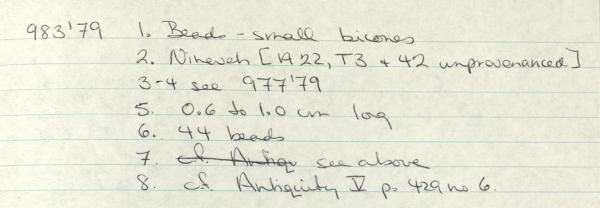 983'79 1. Beads - small bicones
2. Nineveh [1A22, T3 + 42 unprovenanced]
3-4 see 977'79
5. 0.6 to 1.0 cm long
6. 44 beads
7. cf. Antiqu see above
8. cf. Antiquity V p. 429 no 6.